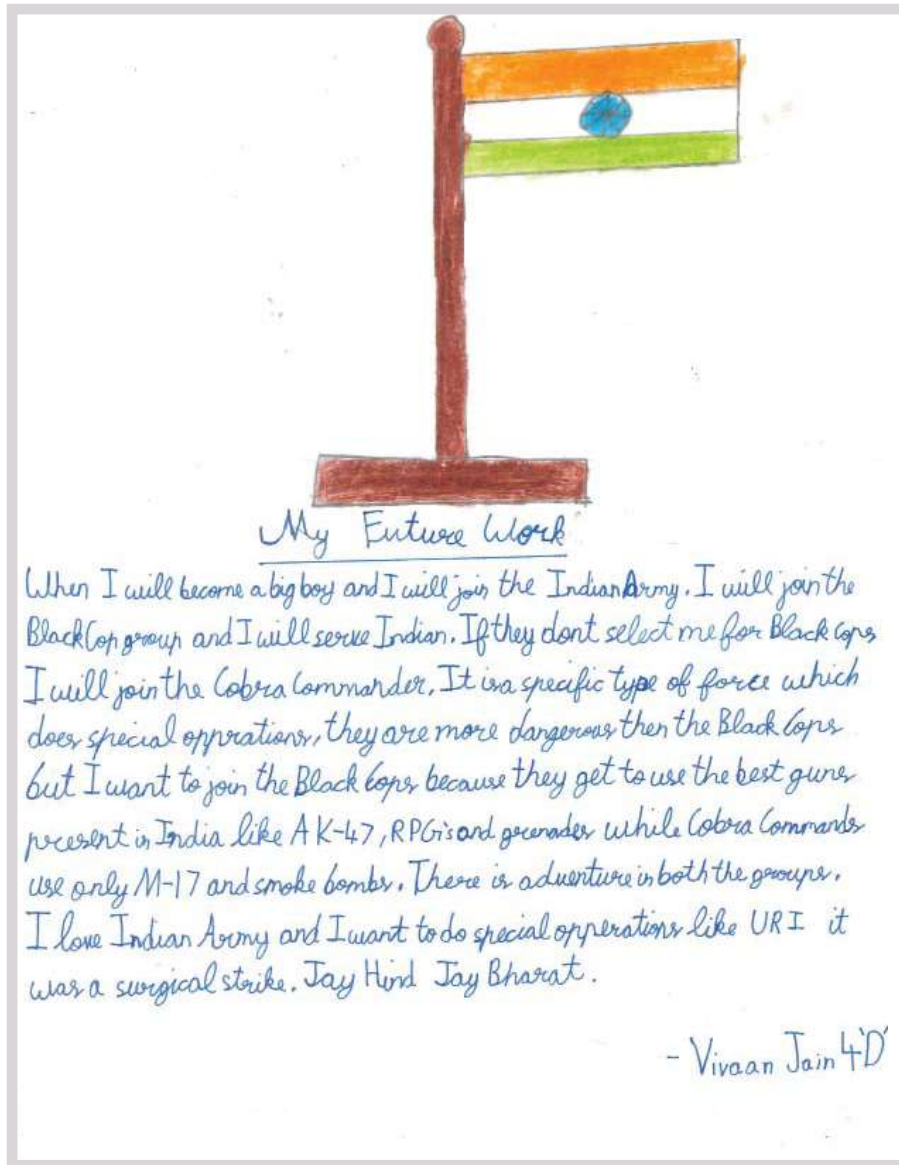 My Future Work
When I will become a big boy and I will join the Indian Army. I will join the
Black Cop group and I will serve Indian. If they dont select me for Black Cops
I will join the Cobra Commander. It is a specific type of force which
does special opprations, they are more dangerous then the Black Cops
but I want to join the Black Cops because they get to use the best guns
present in India like AK-47, RPG's and grenades while Cobra Commands
use only M-17 and smoke bombs. There is adventure in both the groups.
I love Indian Army and I want to do special opperations like URI it
was a surgical strike. Jay Hind Jay Bharat.
- Vivaan Jain 4'D'